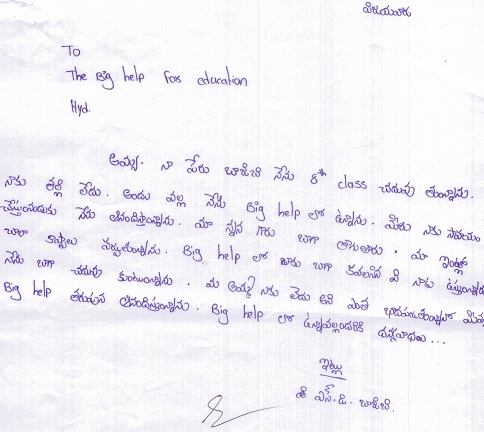 విజయవాడ
To
The Big help for education
Hyd.
అమ్మా. నా పేరు బాజిబి నేను 8th class చదువు తున్నాను.
నాకు తల్లి లేదు. అందు వల్ల నేను Big help లో ఉన్నాను. మీరు నాకు సాహయం
చేస్తునందుకు నేను ఆనందిస్తున్నాను. మా నాన్న గారు బాగా తాగుతారు. మా ఇంట్లో
చాలా కష్టాలు పడ్నుతున్నాను. Big help లో వారు బాగా కావలసిన వి నాకు ఇస్తున్నారు
నేను బాగా చదువు కుంటున్నాను. మా అమ్మ నాకు లేదు అని ఎంత
Big help తరుపున ఆనందిస్తున్నాను. Big help లో ఉన్నవాల్లందరికి ధన్యవాదాలు...
ఇట్లు
ఎస్.డి. బాజిబి.